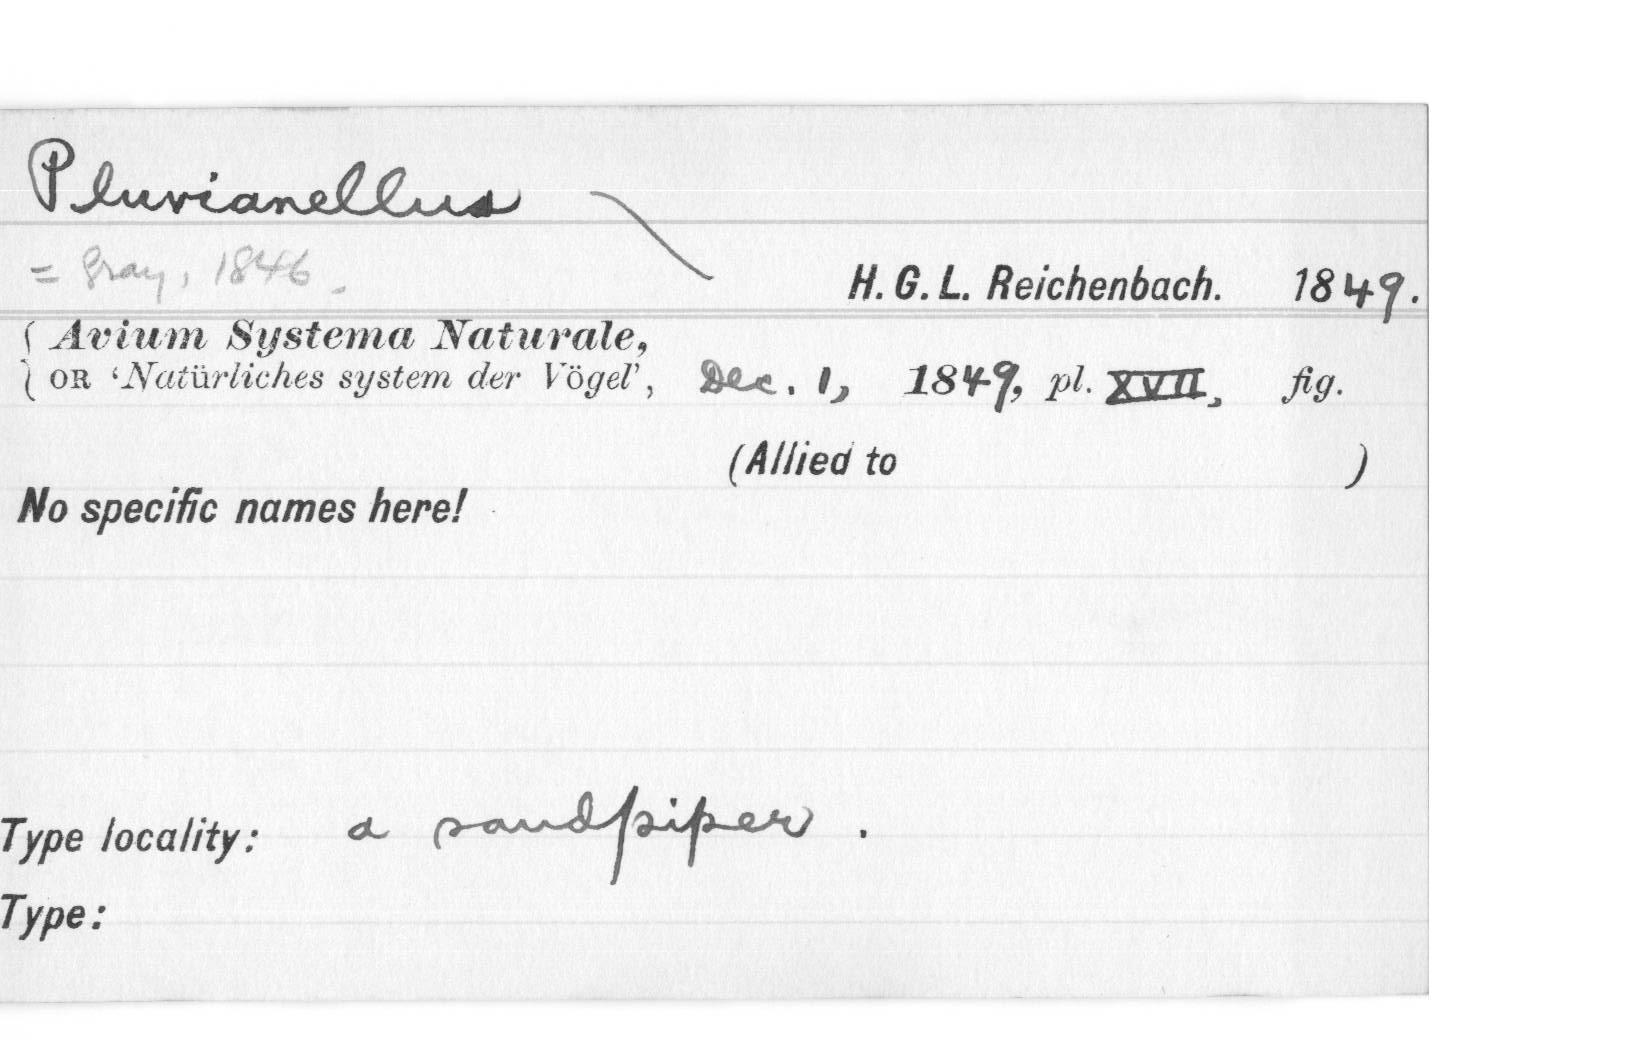 Pluvianellus
= Gray, 1846.
H. G. L. Reichenbach. 1849.
{ Avium Systema Naturale,
OR ‘Natürliches system der Vögel’, Dec. 1, 1849, pl. XVII, fig.
(Allied to )
No specific names here!
Type locality: a sandpiper .
Type: